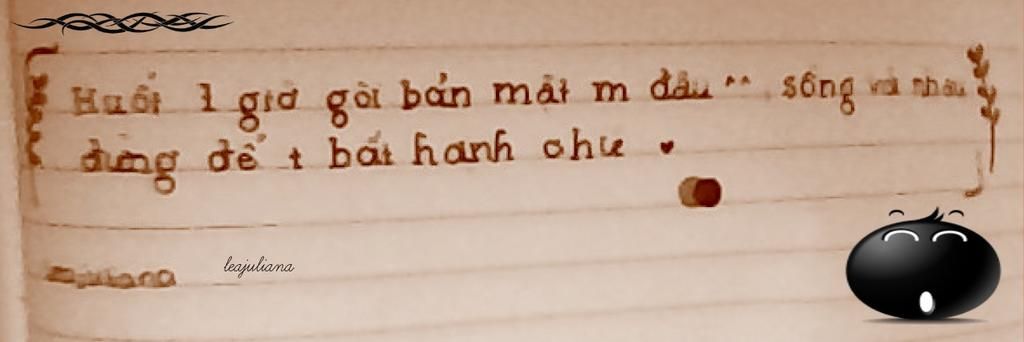 Huốt 1 giờ gòi bản mặt m đâu ^^ sống với nhau
đừng để t bất hạnh chu ♥
leajuliana